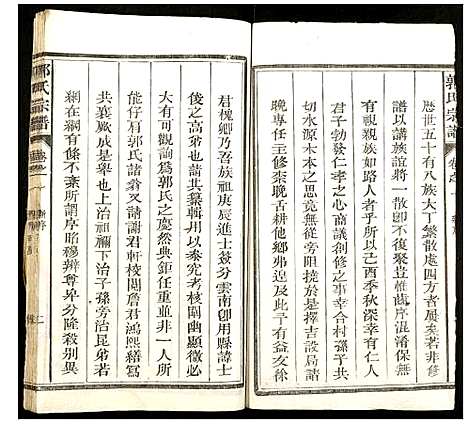 郭氏宗譜
歷世五十有八族大丁繁散處四方者若非修
譜以講族誼將一散卽不復聚豈惟齒序混淆保無
有視親族如路人者乎所以己酉季秋深幸有仁人
君子勃發仁孝之心商議創修之事幸合村孫子共
切水源木本之思竟無從旁阻撓於是擇吉設局諸
晚專任主修柰晚舌耕他鄉弗遑及此于有益友徐
君槐卿乃吾族祖庚辰進士簽分雲南卽用縣諱士
俊之高弟也請共纂輯用以參究考核闡幽顯微必
大有可觀諭爲郭氏之慶然典鉅任重並非一人所
能仔肩郭氏諸翁又請謝君軒校閱詹君鴻熙繕寫
共襄厥成是舉也上治祖禰下治子孫旁治昆弟若
綱在綱有條不紊所謂序昭穆辨尊卑分隆殺別異
郭氏宗譜